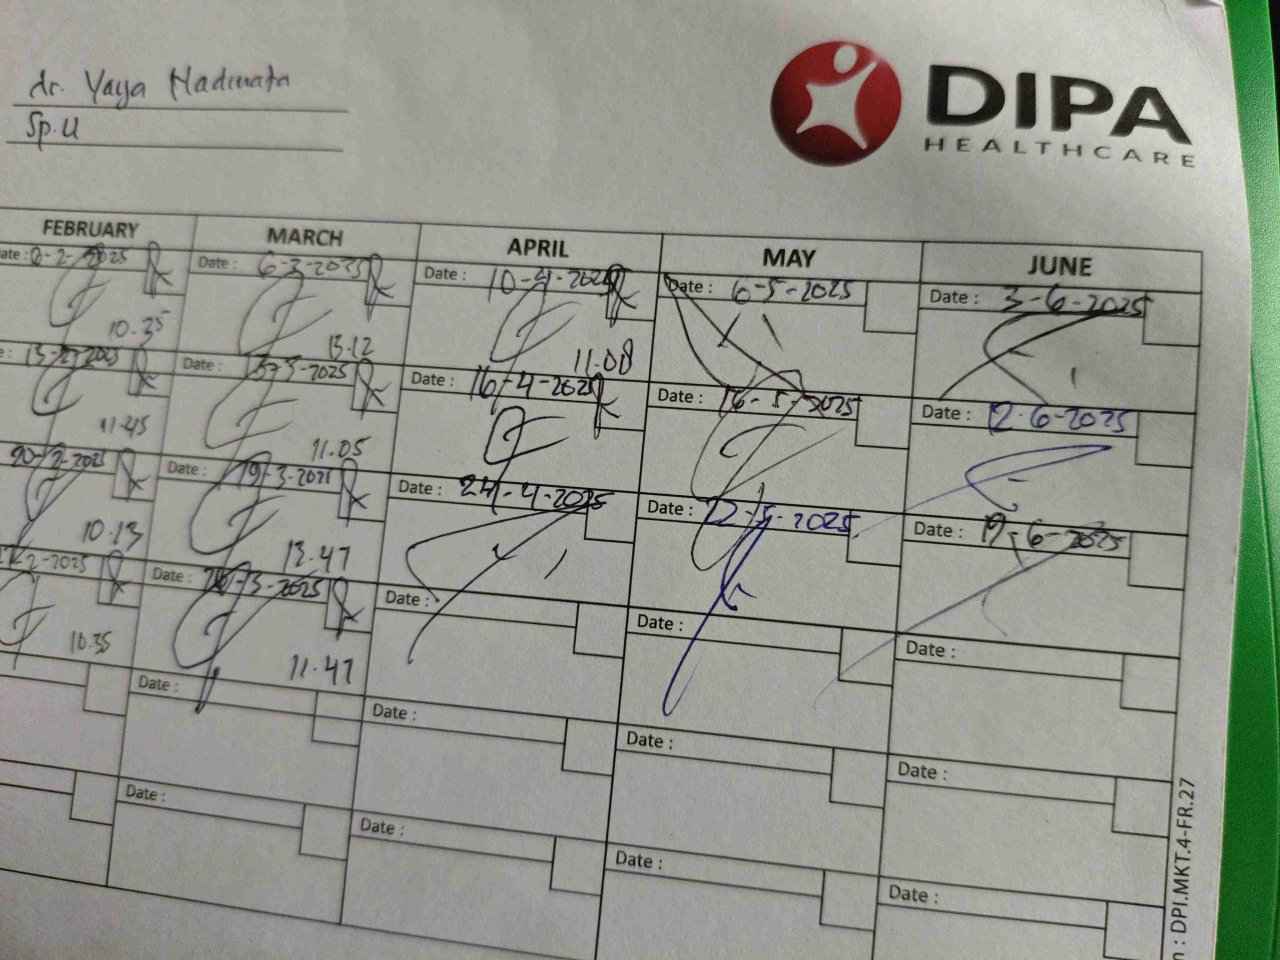 dr. Yaya Hadinata
Sp.U
DIPA
HEALTHCARE
FEBRUARY MARCH APRIL MAY JUNE
ate : 2025 Date : 6-3-2025 Date : 10-4-2025 Date : 6-5-2025 Date : 3-6-2025
10.35 13.12 11.08
13-2-2025 Date : 2025 Date : 16-4-2025 Date : 16-5-2025 Date : 12-6-2025
11.45 11.05
20-2-2025 Date : 19-3-2021 Date : 24-4-2025 Date : 22-5-2025 Date : 19-6-2025
10.13 13.47
2-2025 Date : 3-2025 Date : Date : Date :
10.35 11.47
Date : Date : Date : Date :
Date : Date : Date : Date :
: DPI.MKT.4-FR.27